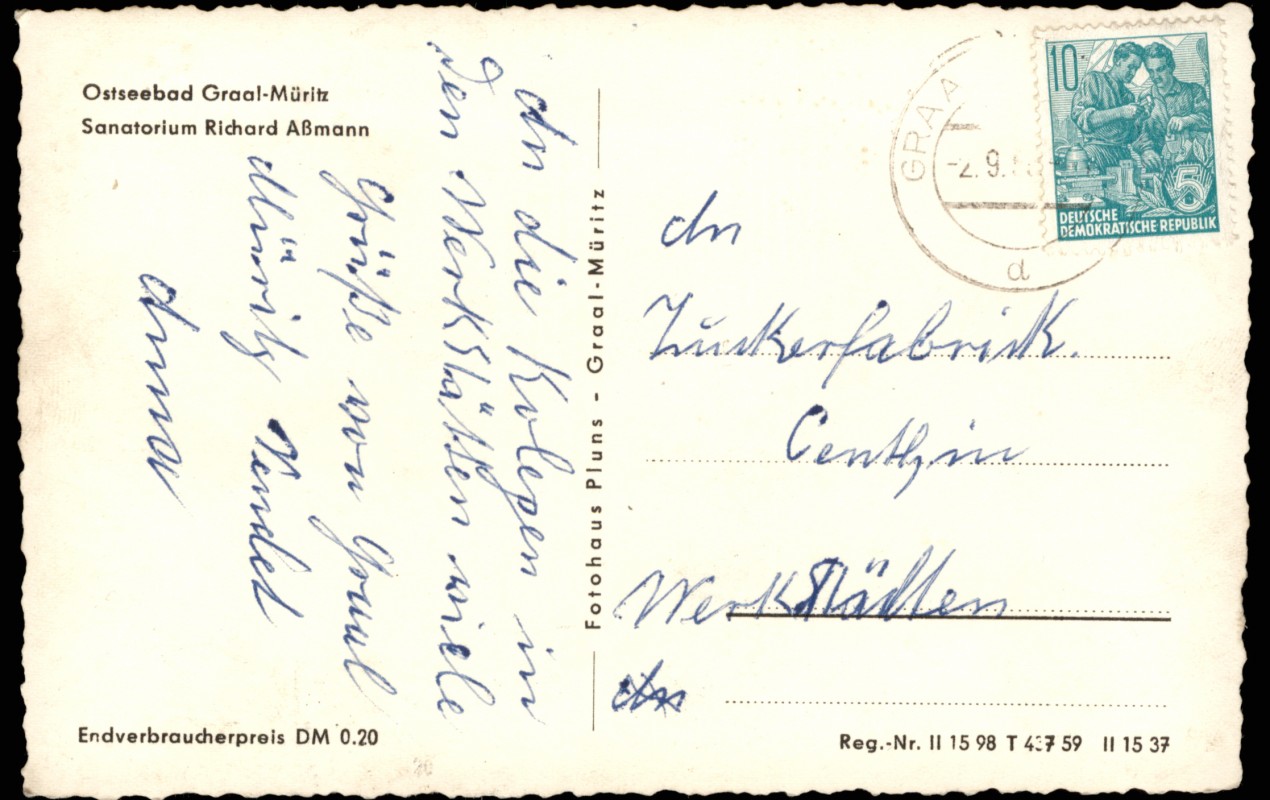 Ostseebad Graal-Müritz
Sanatorium Richard Aßmann
An die Kolegen in
den Werkstätten viele
Grüße von Graal
Müritz sendet
Endverbraucherpreis DM 0.20
Fotohaus Pluns - Graal-Müritz
GRAA
-2.9.
d
10
5
DEUTSCHE
DEMOKRATISCHE REPUBLIK
An
Zuckerfabrick.
Genthin
Werkstätten
Reg.-Nr. II 15 98 T 437 59 II 15 37